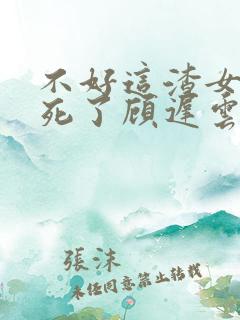 不好這渣女
死了顾遲雲
張沫
未任同意禁止转载